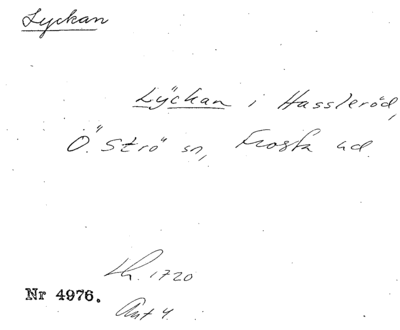 Lyckan
Lÿckan i Hassleröd,
Ö. Strö sn, Frosta hd.
Lh. 1720
Nr 4976.
Ant 4.